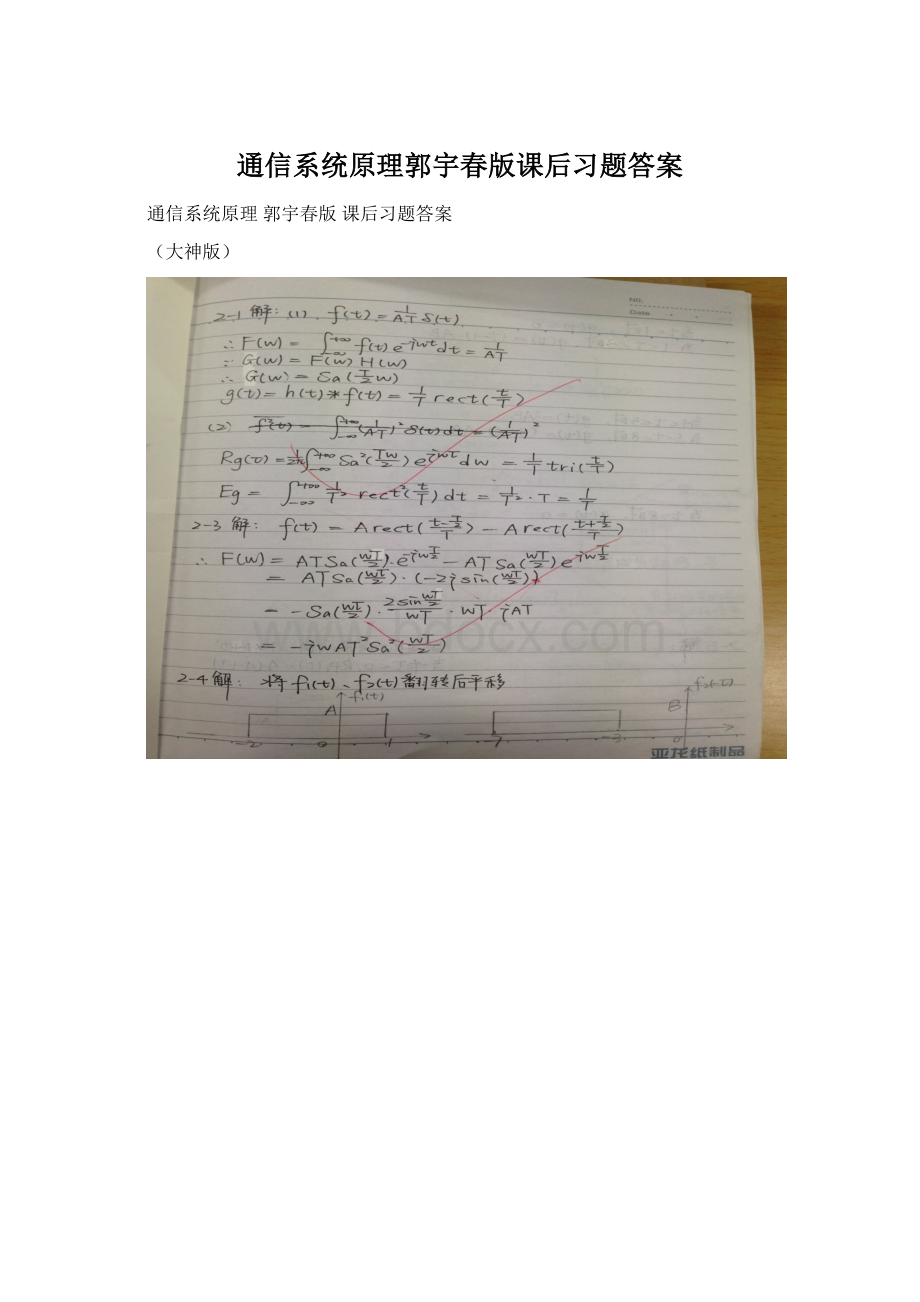 通信系统原理郭宇春版课后习题答案
通信系统原理 郭宇春版 课后习题答案
（大神版）
NO.
Date
2-1 解: (1) f(t) = 1/AT δ(t)
∴ F(w) = ∫_{-∞}^{+∞} f(t) e^{-jwt} dt = 1/AT
∵ G(w) = F(w) H(w)
∴ G(w) = Sa(T/2 w)
g(t) = h(t) * f(t) = 1/T rect(t/T)
(2) f²(t) = ∫_{-∞}^{+∞} (1/AT)² δ(t) dt = (1/AT)²
Rg(τ) = 1/2π ∫_{-∞}^{+∞} Sa²(Tw/2) e^{jwτ} dw = 1/T tri(t/T)
Eg = ∫_{-∞}^{+∞} 1/T² rect²(t/T) dt = 1/T² · T = 1/T
2-3 解: f(t) = A rect((t-T/2)/T) - A rect((t+T/2)/T)
∴ F(w) = AT Sa(wT/2) · e^{-jwT/2} - AT Sa(wT/2) e^{jwT/2}
= AT Sa(wT/2) · (-2j sin(wT/2))
= - Sa(wT/2) · 2sin(wT/2)/wT · wT · jAT
= -jwAT² Sa²(wT/2)
2-4 解: 将 f₁(t)、f₂(t) 翻转后平移
f₁(t) f₂(-τ)
A B
-2 0 1 -7 -3 0
www.bdocx.com
亚龙纸制品